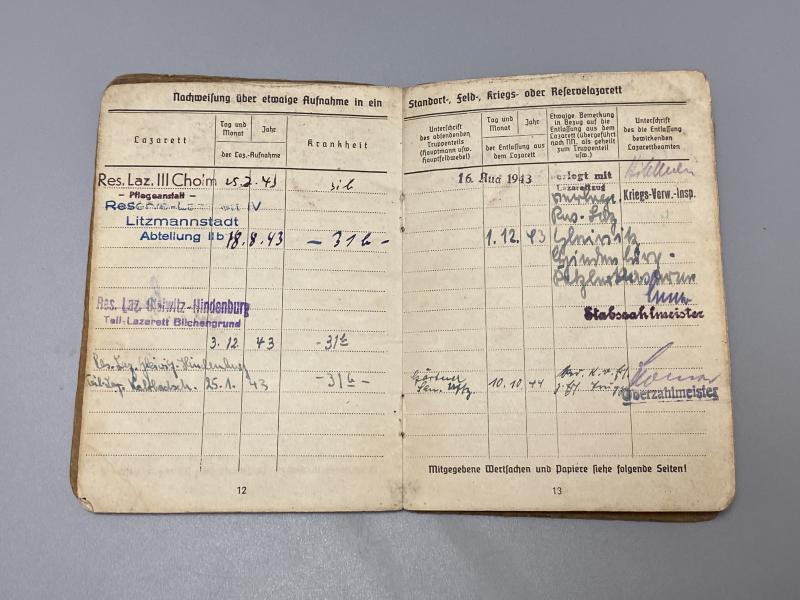 Nachweisung über etwaige Aufnahme in ein
Lazarett
Tag und Monat
Jahr
der Laz.-Aufnahme
Krankheit
Res. Laz. III Cho'm
25.7.43
31b
- Pflegeanstalt -
IV
Litzmannstadt
Abteilung IIb
18.8.43
- 31b -
Res. Laz. Gleiwitz-Hindenburg
Teil-Lazarett Bilchengrund
3.12. 43
- 31b
Res. Laz. Gleiwitz-Hindenburg
25.1. 43
- 31b -
12
Standort-, Feld-, Kriegs- oder Reservelazarett
Unterschrift
des absendenden
Truppenteils
(Hauptmann usw.
Hauptfeldwebel)
Tag und Monat
Jahr
der Entlassung aus
dem Lazarett
Etwaige Bemerkung
in Bezug auf die
Entlassung aus dem
Lazarett (übergeführt
nach NN, als geheilt
zum Truppenteil
usw.)
Unterschrift
des die Entlassung
bewirkenden
Lazarettbeamten
16. Aug 1943
verlegt mit
Lazarettzug
Kriegs-Verw.-Insp.
Res. Laz
1.12. 43
Gleiwitz
Hindenburg-
Stabszahlmeister
Gärtner
San. Uffz.
10.10. 44
Oberzahlmeister
Mitgegebene Wertsachen und Papiere siehe folgende Seiten!
13